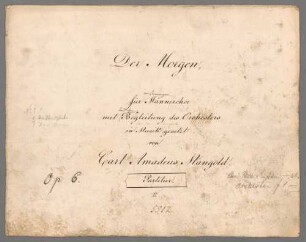 Der Morgen,
für Männerchor
mit Begleitung des Orchesters
in Musik gesetzt
von
Carl Amadeus Mangold
Op 6.
Partitur